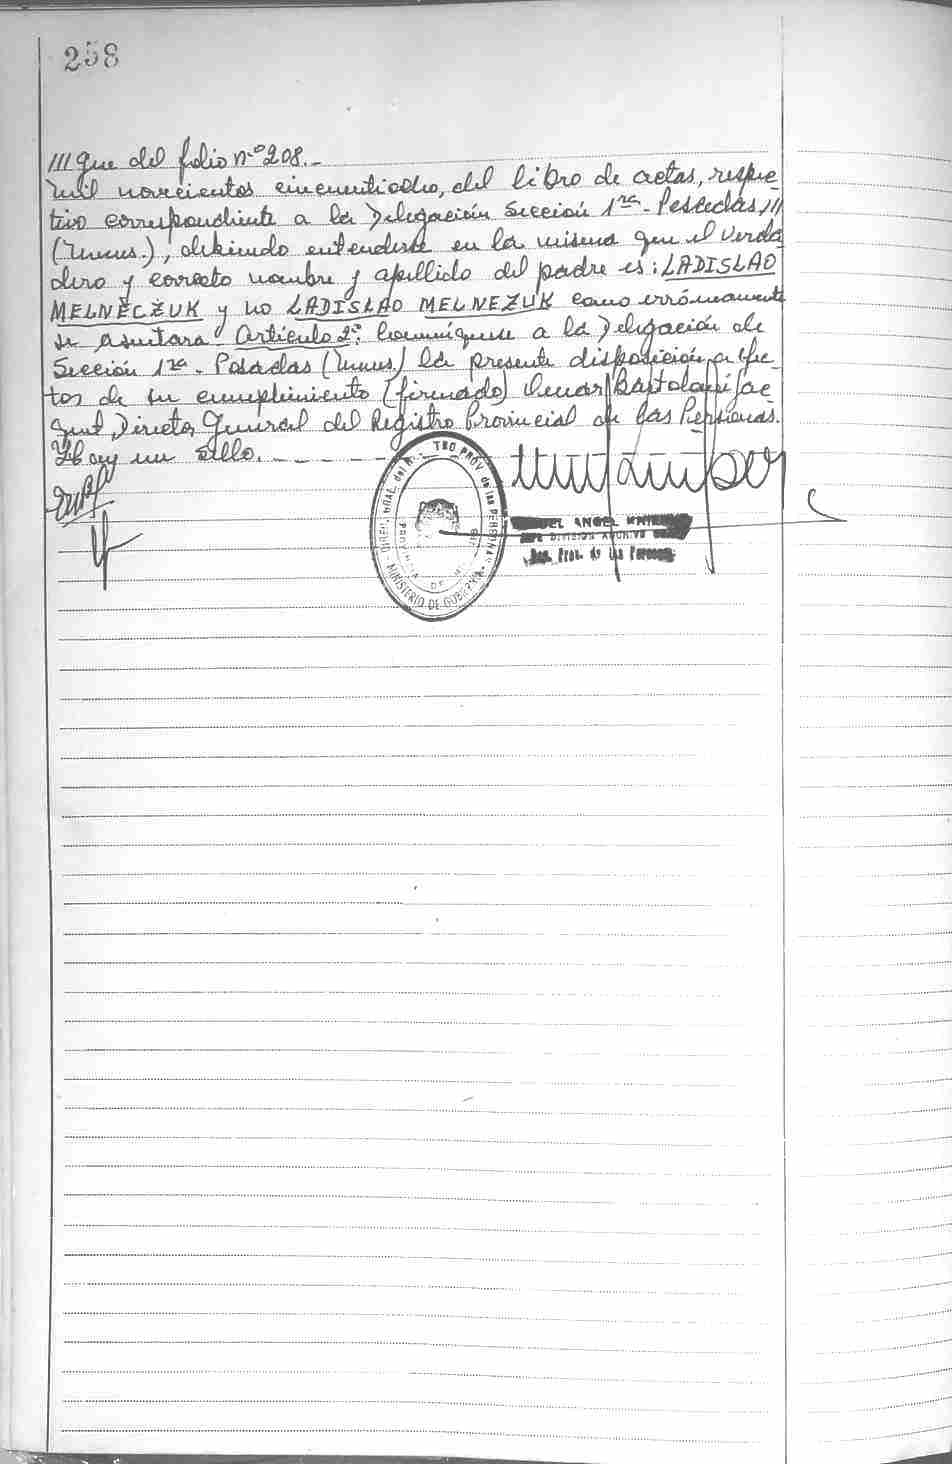 258
/// que del folio nº 208.-
mil novecientos cincuentiocho, del libro de actas, respec-
tivo correspondiente a la Delegación Sección 1ra.- Posadas, ///
(Mnes.), debiendo entenderse en la misma que el verda
dero y correcto nombre y apellido del padre es: LADISLAO
MELNECZUK y no LADISLAO MELNEZUK como erróneamente
se asentara. Artículo 2º: Comuníquese a la Delegación de
Sección 1ra.- Posadas (Mnes.) la presente disposición a efec
tos de su cumplimiento (firmado) Bartolomé
Director General del Registro Provincial de las Personas.
Hay un sello. - - - -
DIREC. GRAL. del TRO PROV. de las PERSONAS
PROVINCIA DE
MINISTERIO DE GOBIERNO
ANGEL
DIVISION ARCHIVO
Prov. de las Personas